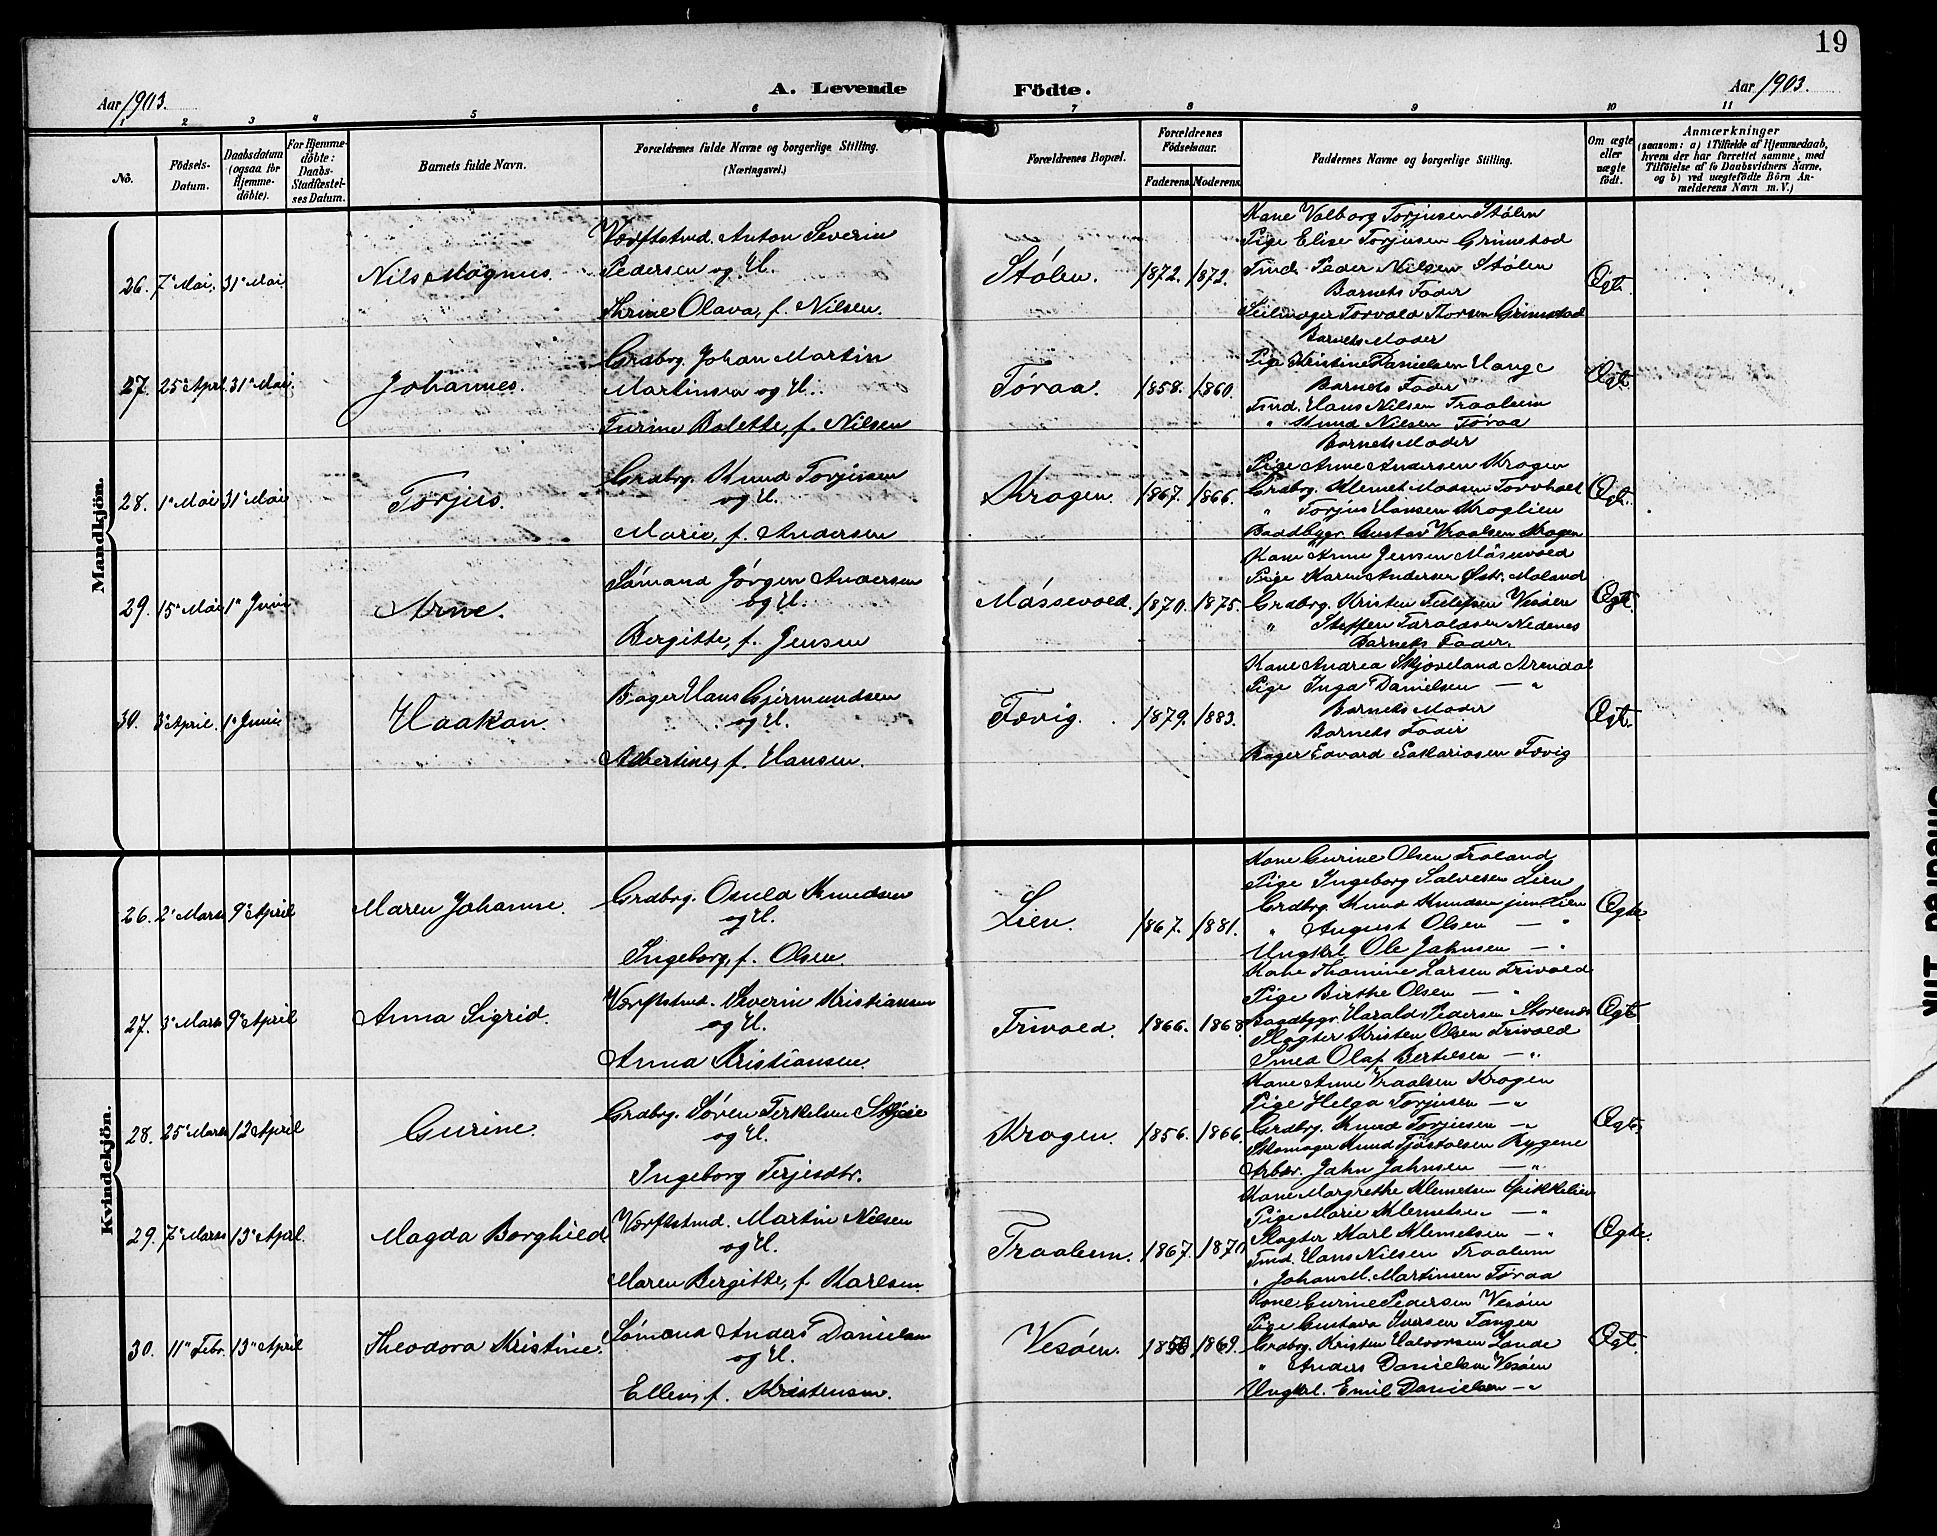 19
Aar 1903.
A. Levende Födte.
Aar 1903.
1 2 3 4 5 6 7 8 9 10 11
No.
Födsels-Datum.
Daabsdatum (ogsaa for Hjemmedöbte).
For Hjemmedöbte: Daabs-Stadfæstelses Datum.
Barnets fulde Navn.
Forældrenes fulde Navne og borgerlige Stilling. (Næringsvei.)
Forældrenes Bopæl.
Forældrenes Födselsaar.
Faderens. Moderens.
Faddernes Navne og borgerlige Stilling.
Om ægte eller uægte födt.
Anmærkninger
(saasom: a) i Tilfælde af Hjemmedaab, hvem der har forrettet samme, med Tilföielse af to Daabsvidners Navne, og b) ved uægtefödte Börn Anmelderens Navn m. V.)
Mandkjön.
26. 7de Mai. 31te Mai. Nils Magnus.
Værftstmd. Anton Severin
Pedersen og H.
Thrine Olava, f. Nilsen.
Stølen. 1872. 1872.
Kone Valborg Torjusen Stølen
Pige Elise Torjusen Grimstad
Tmd. Peder Nilsen Stølen
Barnets Fader
Seilmager Torvald Thorsen Grimstad
Ægt.
27. 25de April 31te Mai. Johannes.
Grdbrg. Johan Martin
Martinsen og H.
Turine Bolette, f. Nilsen
Tøraa. 1858. 1860.
Barnets Moder
Pige Kristine Danielsen Hauge
Barnets Fader
Tmd. Hans Nilsen Traalum
" Knud Nilsen Tøraa
Ægt.
28. 1ste Mai 31te Mai Torjus.
Grdbrg. Knud Torjusen
og H.
Marie, f. Andersen
Krogen. 1867. 1866.
Barnets Moder
Pige Anne Andersen Krogen
Grdbrg. Klemet Madsen Torvholt
" Torjus Hansen Kroglien
Baadbygr. Gustav Vraalsen Krogen
Ægt.
29. 15de Mai 1ste Juni Arne.
Sømand Jørgen Andersen
og H.
Bergitte, f. Jensen
Måssevold. 1870. 1875.
Kone Anne Jensen Måssevold
Pige Karen Andersen Østr. Moland
Grdbrg. Kristen Tellefsen Vesøen
" Steffen Taraldsen Nedenes
Barnets Fader.
Ægt.
30. 3die April. 1ste Juni Haakon.
Bager Hans Gjermundsen
og H.
Albertine, f. Hansen.
Fævig. 1879. 1883.
Kone Andrea Skjøveland Arendal
Pige Inga Danielsen — "
Barnets Moder
Barnets Fader
Bager Edvard Sakariasen Fævig
Ægt.
Kvindekjön.
26. 2den Marts 9de April Maren Johanne.
Grdbrg. Osuld Knudsen
og H.
Ingeborg, f. Olsen.
Lien. 1867. 1881.
Kone Gurine Olsen Froland
Pige Ingeborg Salvesen Lien
Grdbrg. Knud Knudsen jun Lien
" August Olsen — "
Ungkrl. Ole Jahnsen — "
Ægte
27. 3die Marts 9de April Anna Sigrid.
Værftstmd. Severin Kristiansen
og H.
Anna Kristiansen.
Frivold. 1866. 1868
Kone Thomine Larsen Frivold
Pige Birthe Olsen — "
Baadbygr. Harald Pedersen Storenes
Slagter Kristen Olsen Frivold
Smed Olaf Bertelsen — "
Ægt.
28. 25de Marts 12te April Gurine.
Grdbrg. Søren Terkelsen Skjeie
og H.
Ingeborg Terjesdtr.
Krogen. 1856. 1866.
Kone Anne Vraalsen Krogen
Pige Helga Torjusen — "
Grdbrg. Knud Torjusen — "
Skomager Knud Tjøstolsen Rygene
Arbdr. Jahn Jahnsen — "
Ægt.
29. 7de Marts 13de April. Magda Borghild.
Værftstmd. Martin Nilsen
og H.
Maren Bergitte, f. Karlsen.
Traalum. 1867. 1870
Kone Margrethe Klemetsen Spikkelien
Pige Marie Klemetsen — "
Slagter Karl Klemetsen — "
Tmd. Hans Nilsen Traalum
" Johan M. Martinsen Tøraa
Ægte.
30. 11te Febr. 13de April Theodora Kristine.
Sømand Anders Danielsen
og H.
Ellen, f. Kristensen.
Vesøen. 1869.
Kone Gurine Pedersen Vesøen
Pige Gustava Iversen Tanger
Grdbrg. Kristen Halvorsen Lande
" Anders Danielsen Vesøen
Ungkrl. Emil Danielsen — "
Ægt.